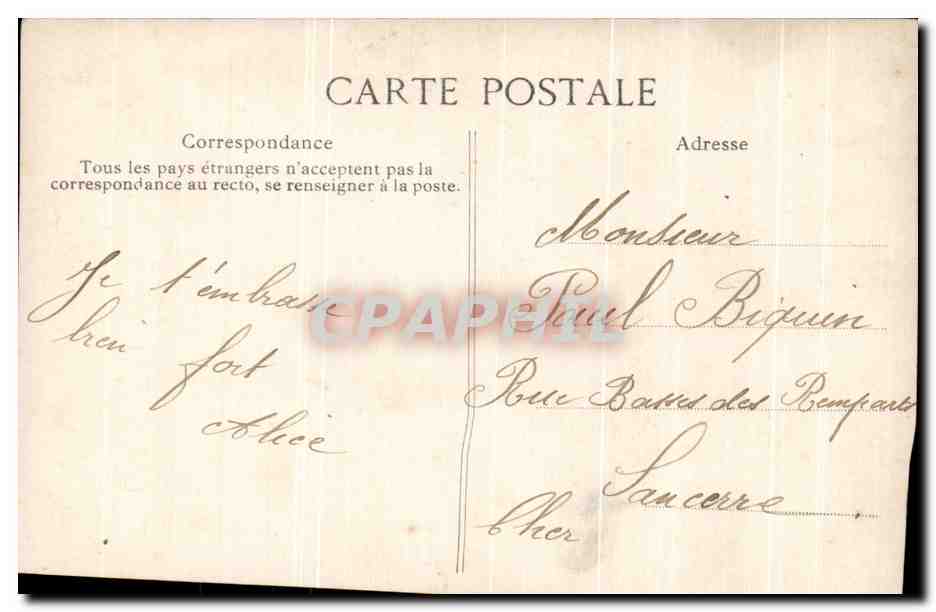 CARTE POSTALE
Correspondance
Tous les pays étrangers n'acceptent pas la
correspondance au recto, se renseigner à la poste.
Je t'embrasse
bien fort
Alice
Adresse
Monsieur
Paul Biquin
Rue Basses des Remparts
Sancerre
Cher
CPAPHIL